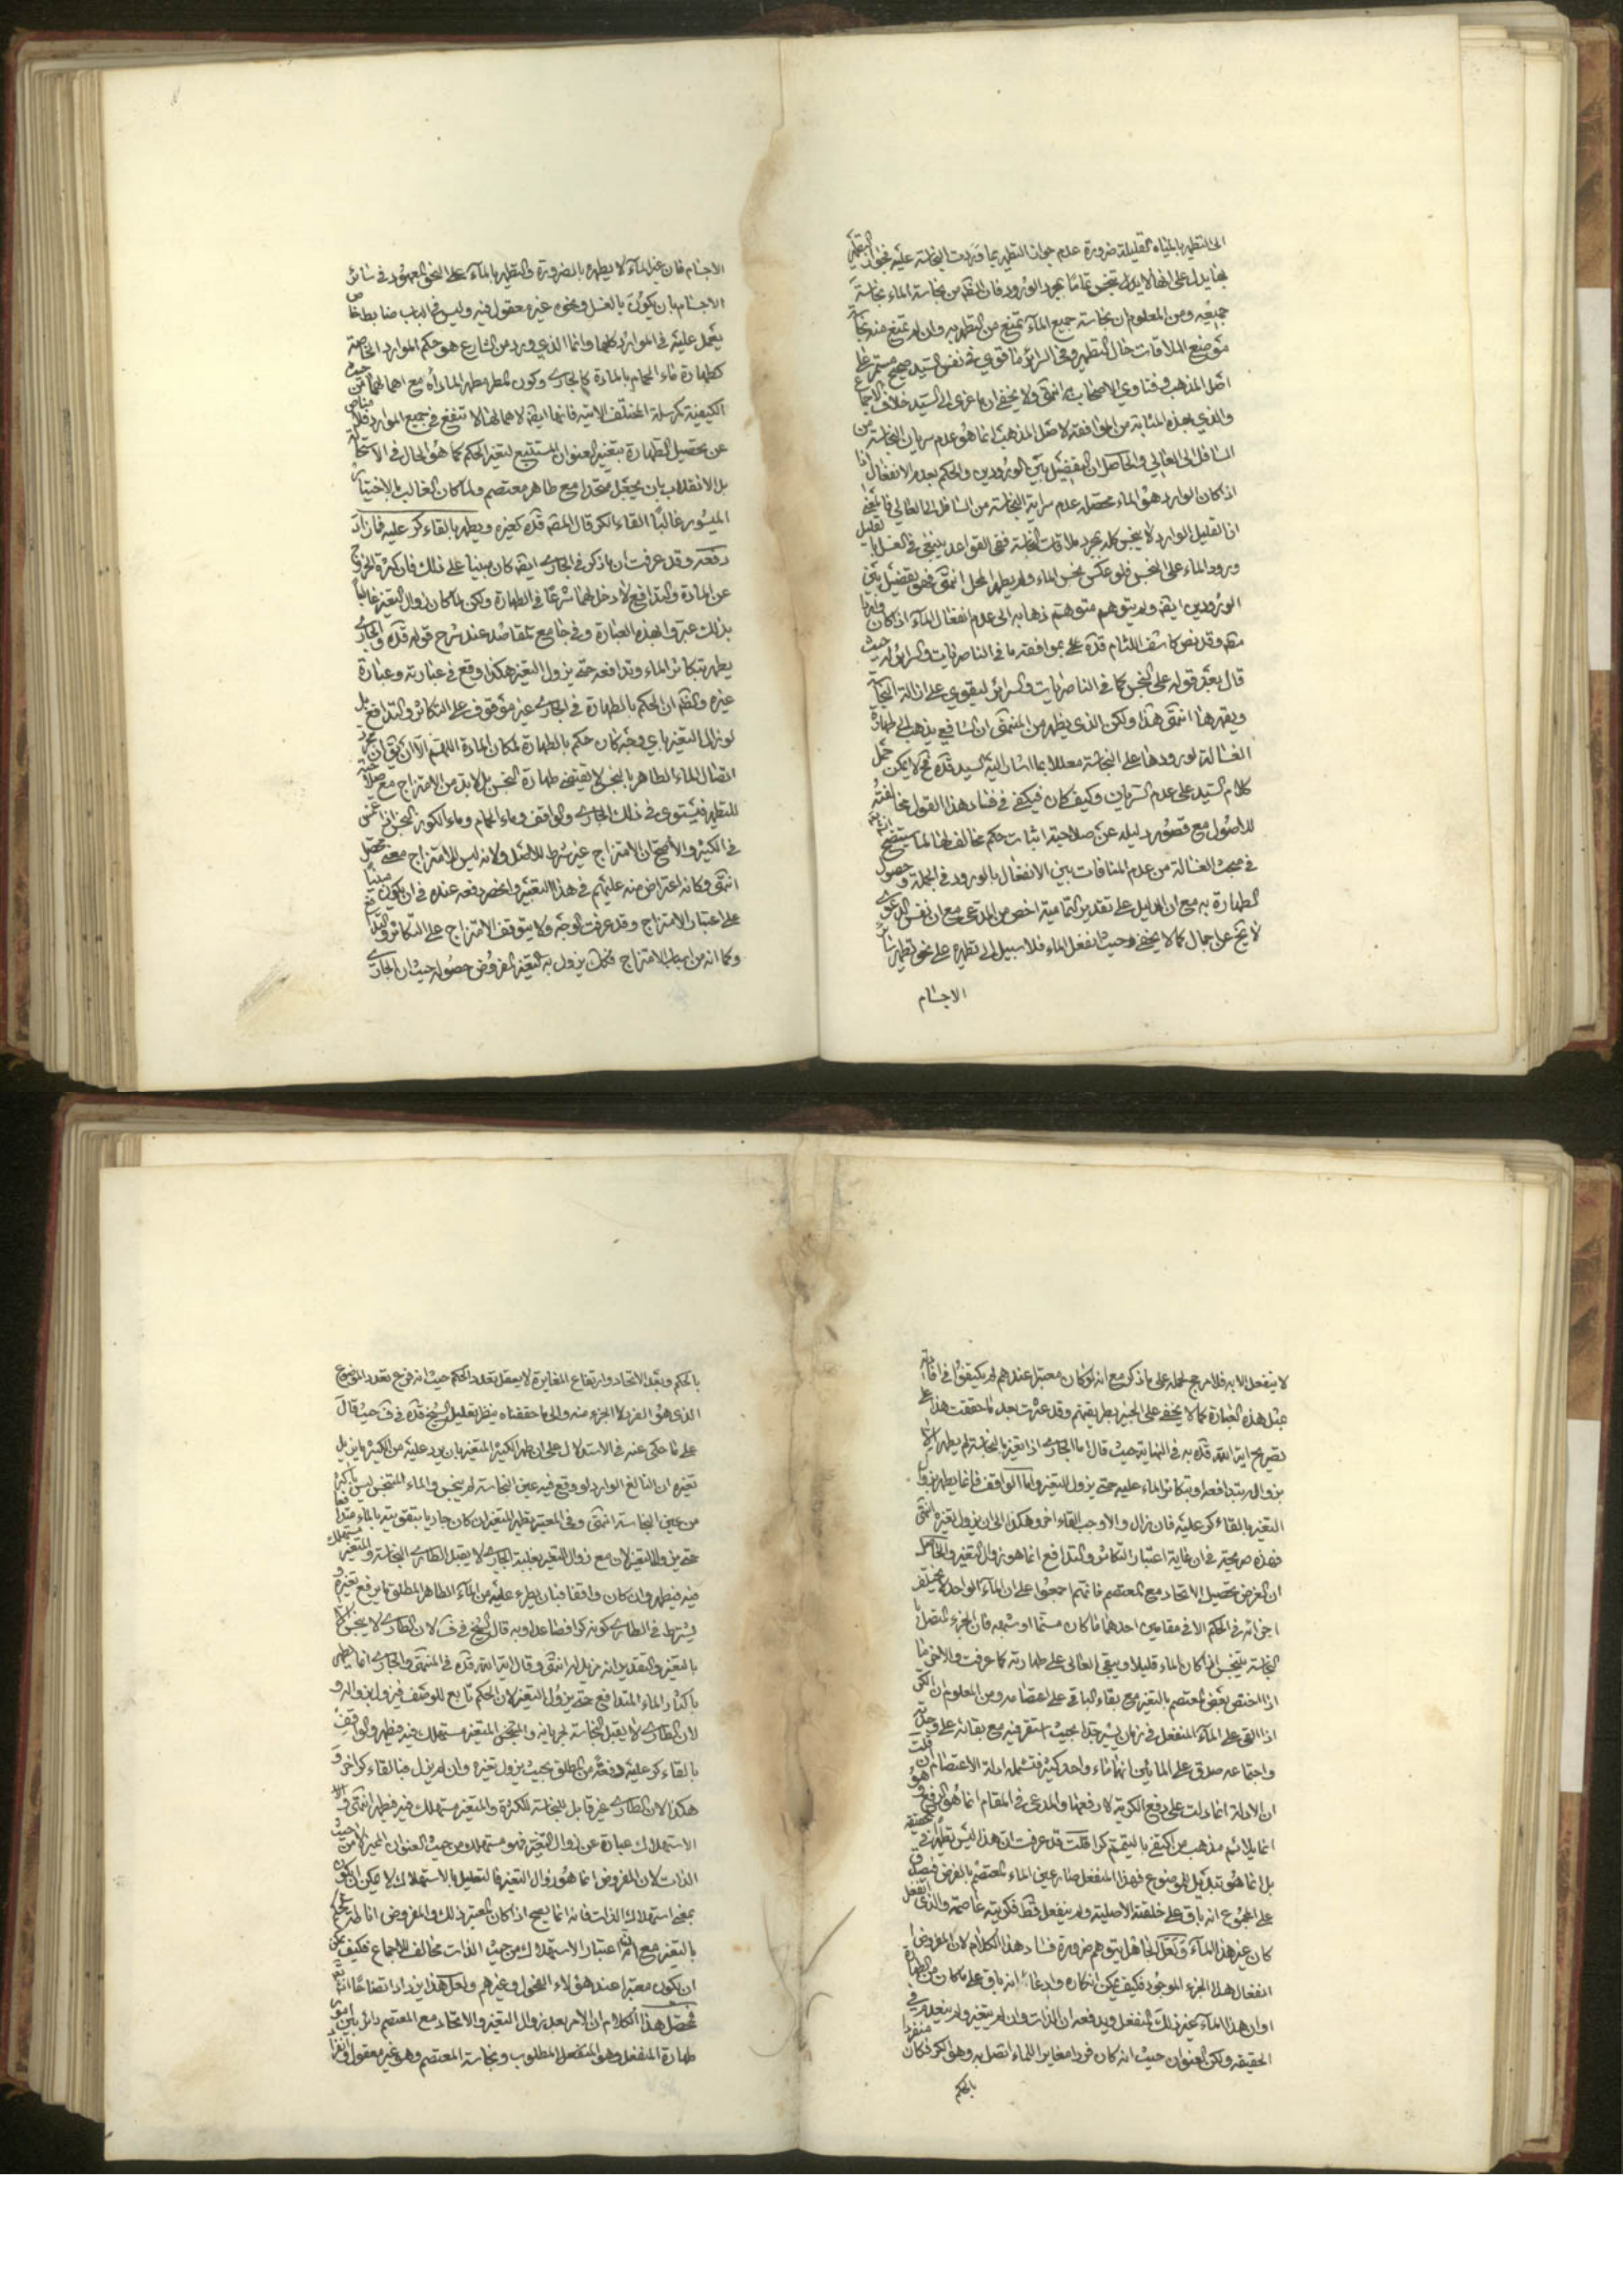 الى التطهير بالمياه القليلة ضرورة عدم جواز التطهير بما وردت النجاسة عليه فجواز التطهير
بها يدل على انها لا يدل تنجس تماما بمجرد الورود فان الظ من نجاسة الماء نجاسة
جميعه ومن المعلوم ان نجاسة جميع الماء تمنع من التطهير به وان لم تمنع منه نجاسة
موضع الملاقات حال التطهير وفي السرائر ما قوي في نفس السيد صحيح مستمر على
اصل المذهب وفتاوي الاصحاب به انتهى ولا يخفى ان ما عزى الى السيد خلاف الاجماع
والذي بهذه المثابة من الموافقة لاصل المذهب انما هو عدم سريان النجاسة من
السافل الى العالي والحاصل ان التفصيل بين الورودين والحكم بعدم الانفعال اذا
اذا كان الوارد هو الماء محصله عدم سراية النجاسة من السافل الى العالي
اذ القليل الوارد لا ينجس كله بمجرد ملاقات النجاسة ففي القواعد ينبغي في الغسل بالقليل
ورود الماء على النجس فلو عكس نجس الماء ولم يطهر المحل انتهى فهو تفصيل بين
الورودين ايضا ولم يتوهم متوهم ذهابه الى عدم انفعال الماء اذا كان واردا
وقد نص كاشف اللثام قده على موافقته ما في الناصريات والسرائر حيث
قال بعد قوله على النجس كما في الناصريات والسرائر ليقوي على ازالة النجاسة
ويقهرها انتهى هذا ولكن الذي يظهر من المنتهى ان الشافعي يذهب الى طهارة
الغسالة لورودها على النجاسة معللا بما اشار اليه السيد قده فح لا يمكن حمل
كلام السيد على عدم السريان وكيف كان فيكفي في فساد هذا القول مخالفته
للاصول مع قصور دليله عن صلاحية اثبات حكم مخالف لها لما سيتضح
في مبحث الغسالة من عدم المنافات بين الانفعال بالورود في الجملة وحصول
الطهارة به مع ان الدليل على تقدير التمامية اخص من المدعى مع ان نفس الدعوى
لا تخ عن اجمال كما لا يخفى وحيث انفعل الماء فلا سبيل الى تطهيره على نحو تطهير سائر
الاجسام
الاجسام فان غير الماء لا يطهره بالضرورة والتطهير بالماء على النحو المعهود في سائر
الاجسام بان يكون بالغسل ونحوه غير معقول فيه وليس في الباب ضابط خاص
يعمل عليه في الموارد كلها وانما الذي ورد من الشارع هو حكم الموارد الخاصة
كطهارة ماء الحمام بالمادة كالجاري وكون المطر مطهرا لما رآه مع اهمالهما من حيث
الكيفية كمرسلة المختلف الاتية فانها ايضا لاهمالها لا تنفع في جميع الموارد فلا مناص
عن تحصيل الطهارة بتغيير العنوان المستتبع لتغير الحكم كما هو الحال في الاستحالة
بل الانقلاب بان يجعل متحدا مع طاهر معتصم ولما كان الغالب بالاختيار
الميسور غالبا القاء الكر قال المص قده كغيره ويطهر بالقاء كر عليه فما زاد
دفعة وقد عرفت ان ما ذكر في الجاري ايضا كان مبنيا على ذلك فان كثرة الخروج
عن المادة والتدافع لا دخل لهما شرعا في الطهارة ولكن لما كان زوال التغير غالبا
بذلك عبروا بهذه العبارة وفي جامع المقاصد عند شرح قوله قده والجاري
يطهر بتكاثر الماء وتدافعه حتى يزول التغير هكذا وقع في عبارته وعبارة
غيره والظ ان الحكم بالطهارة في الجاري غير موقوف على التكاثر والتدافع بل
لو زال التغير باي وجه كان حكم بالطهارة لمكان المادة اللهم الا ان يق ان مجرد
اتصال الماء الطاهر بالنجس لا يقتضي طهارة النجس بل لا بد من الامتزاج مع صلاحيته
للتطهير فيستوي في ذلك الجاري والواقف وماء الحمام وماء الكوز النجس اذا غمس
في الكثير والاصح ان الامتزاج غير شرط للاصل ولانه ليس للامتزاج معنى محصل
انتهى وكانه اعتراض منه عليهم في هذا التعبير وانحصر دفعه عنده في ان يكون مبنيا
على اعتبار الامتزاج وقد عرفت الوجه ولا يتوقف الامتزاج على التكاثر والتدافع
وكما انه من اسباب الامتزاج فكك يزول به التغير المفروض حصوله حيث ان الجاري
لا ينفعل الا به فلا مرجح لحمله على ما ذكر مع انه لو كان معتبرا عندهم لم يكتفوا في افادته
بمثل هذه العبارة كما لا يخفى على الخبير بطريقتهم وقد عثرت بعد ما حققت هذا على
تصريح اية الله قده به في النهاية حيث قال اما الجاري اذا تغير بالنجاسة لم يطهر الا
بزواله بتدافعه او بتكاثر الماء عليه حتى يزول التغير واما الواقف فانما يطهر بزوال
التغير بالقاء كر عليه فان زال والا وجب القاء اخر وهكذا الى ان يزول تغيره انتهى
فهذه صريحة في ان غاية اعتبار التكاثر والتدافع انما هو زوال التغير والحاصل
ان الغرض تحصيل الاتحاد مع المعتصم فانهم اجمعوا على ان الماء الواحد لا يختلف
اجزائه في الحكم الا في مقامين احدهما ما كان مسنما او شبهه فان الجزء المتصل
بالنجاسة ينجس اذا كان الماء قليلا ويبقى العالي على طهارته كما عرفت والاخر ما
اذا اختص بعض المعتصم بالتغير مع بقاء الباقي على اعتصامه ومن المعلوم ان الكر
اذا القي على الماء المنفعل في زمان يسير جدا بحيث استقر فيه مع بقائه على وحدته
واجتماعه صدق على المائين انهما ماء واحد كثير فتشمله ادلة الاعتصام فان قلت
ان الادلة انما دلت على دفع الكرية لا رفعها والمدعى في المقام انما هو الرفع وهو
انما يلائم مذهب من اكتفى بالتتميم كرا قلت قد عرفت ان هذا ليس تطهيرا في الحقيقة
بل انما هو تبديل للموضوع فهذا المنفعل صار عين الماء المعتصم بالفرض فيصدق
على المجموع انه باق على خلقته الاصلية ولم ينفعل قط فكريته عاصمة والذي انفعل
كان غير هذا الماء ولعل الجاهل يتوهم ضرورة فساد هذا الكلام لان المفروض
انفعال هذا الجزء الموجود فكيف يمكن انكاره وادعاء انه باق على ما كان من الطهارة
او ان هذا الماء غير ذلك المنفعل ويدفعه ان الذات وان لم يتغير ولم ينعدم في
الحقيقة ولكن العنوان حيث انه كان فردا مغايرا للماء اتصل به وهو الكر فكان منفردا
بالحكم
بالحكم وبعد الاتحاد وارتفاع المغايرة لا يعقل تعدد الحكم حيث انه فرع تعدد الموضوع
الذي هو الفرد لا الجزء منه والى ما حققناه ينظر تعليل الشيخ قده في ف حيث قال
على ما حكى عنه في الاستدلال على ان طهر الكثير المتغير بان يرد عليه من الكثير ما يزيل
تغيره ان البالغ الوارد لو وقع فيه عين النجاسة لم ينجس والماء المتنجس ليس باكثر
من عين النجاسة انتهى وفي المعتبر يطهر المتغير ان كان جاريا بتقويته بالماء متدافعا
حتى يزول التغير لان مع زوال التغير بغلبة الجاري لا يقبل الطاري النجاسة والمتغير مستهلك
فيه فيطهر وان كان واقفا فبان يطرء عليه من الماء الطاهر المطلق ما يرفع تغيره و
يشترط في الطاري كونه كرا فصاعدا وبه قال الشيخ في ف لان الطاري لا ينجس الا
بالتغير والتقدير انه مزيل له انتهى وقال اية الله قده في المنتهى والجاري انما يطهر
باكثار الماء المتدافع حتى يزول التغير لان الحكم تابع للوصف فيزول بزواله و
لان الطاري لا يقبل النجاسة لجريانه والمتنجس المتغير مستهلك فيه فيطهر والواقف
بالقاء كر عليه دفعة من المطلق بحيث يزول تغيره وان لم يزل فبالقاء كر اخر و
هكذا لان الطاري غير قابل للنجاسة للكثرة والمتغير مستهلك فيه فيطهر انتهى و
الاستهلاك عبارة عن زوال التغير فهو مستهلك من حيث العنوان المميز لا من حيث
الذات لان المفروض انما هو زوال التغير فالتعليل بالاستهلاك لا يمكن ان يكون
بمعنى استهلاك الذات فانه انما يصح اذا كان المعتبر ذلك والمفروض اناطة الحكم
بالتغير مع انه اعتبار الاستهلاك من حيث الذات مخالف للاجماع فكيف يمكن
ان يكون معتبرا عند هؤلاء الفحول وغيرهم ولعل هذا يزداد اتضاحا
محصل هذا الكلام ان الامر بعد زوال التغير والاتحاد مع المعتصم دائر بين امور
طهارة المنفعل وهو المطلوب ونجاسة المعتصم وهو غير معقول